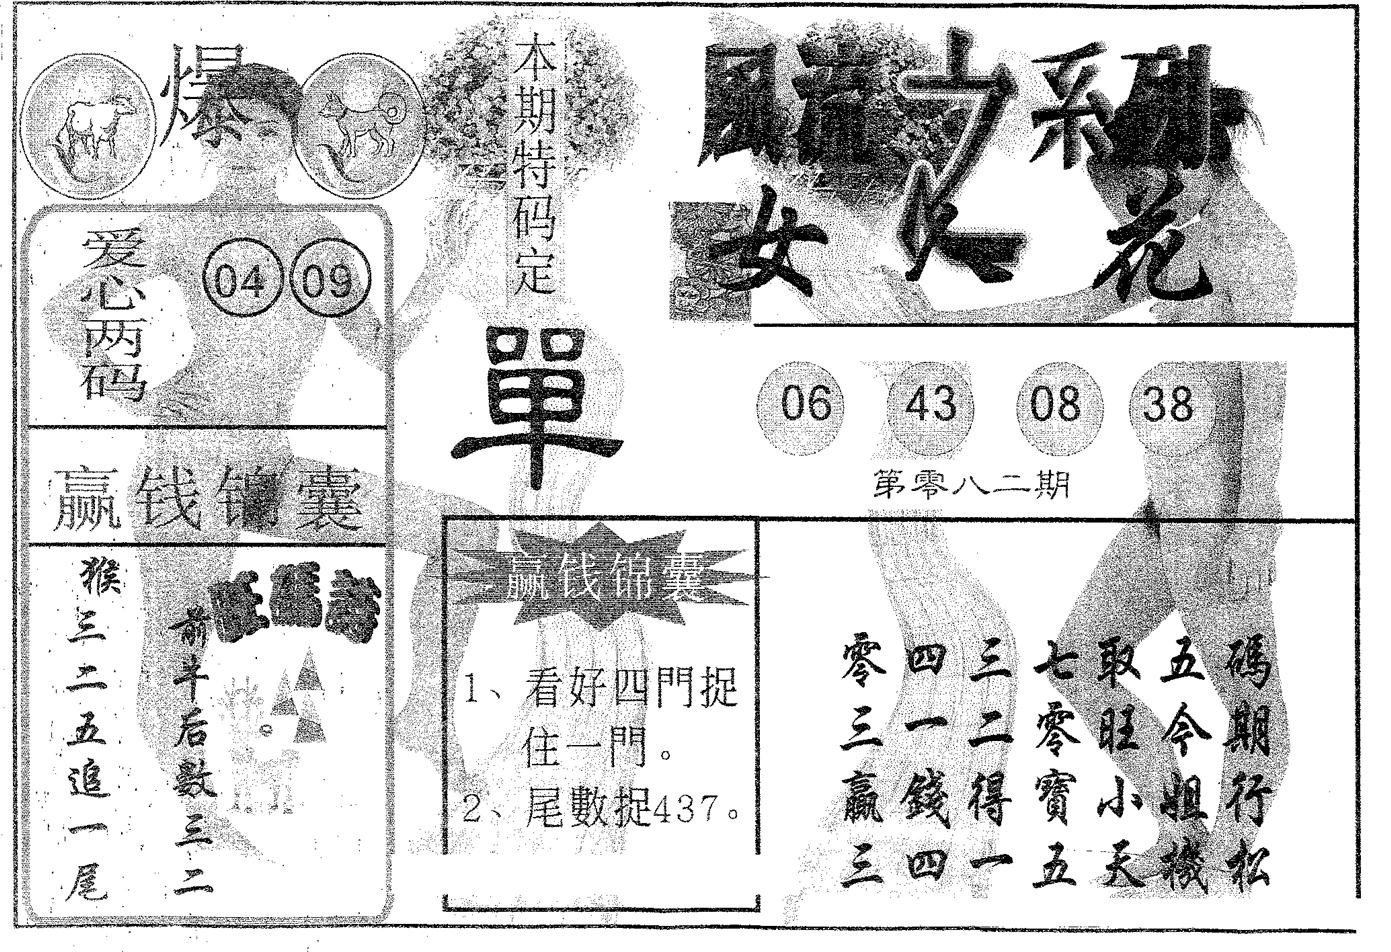 爆
爱心两码
04 09
赢钱锦囊
旺碼詩
前半后數三二。
猴三二五追一尾
本期特码定
單
赢钱锦囊
1、看好四門捉
住一門。
2、尾數捉437。
風流之系列
女人花
06 43 08 38
第零八二期
零四三七取五碼
三一二零旺今期
贏錢得寶小姐行
三四一五天機松